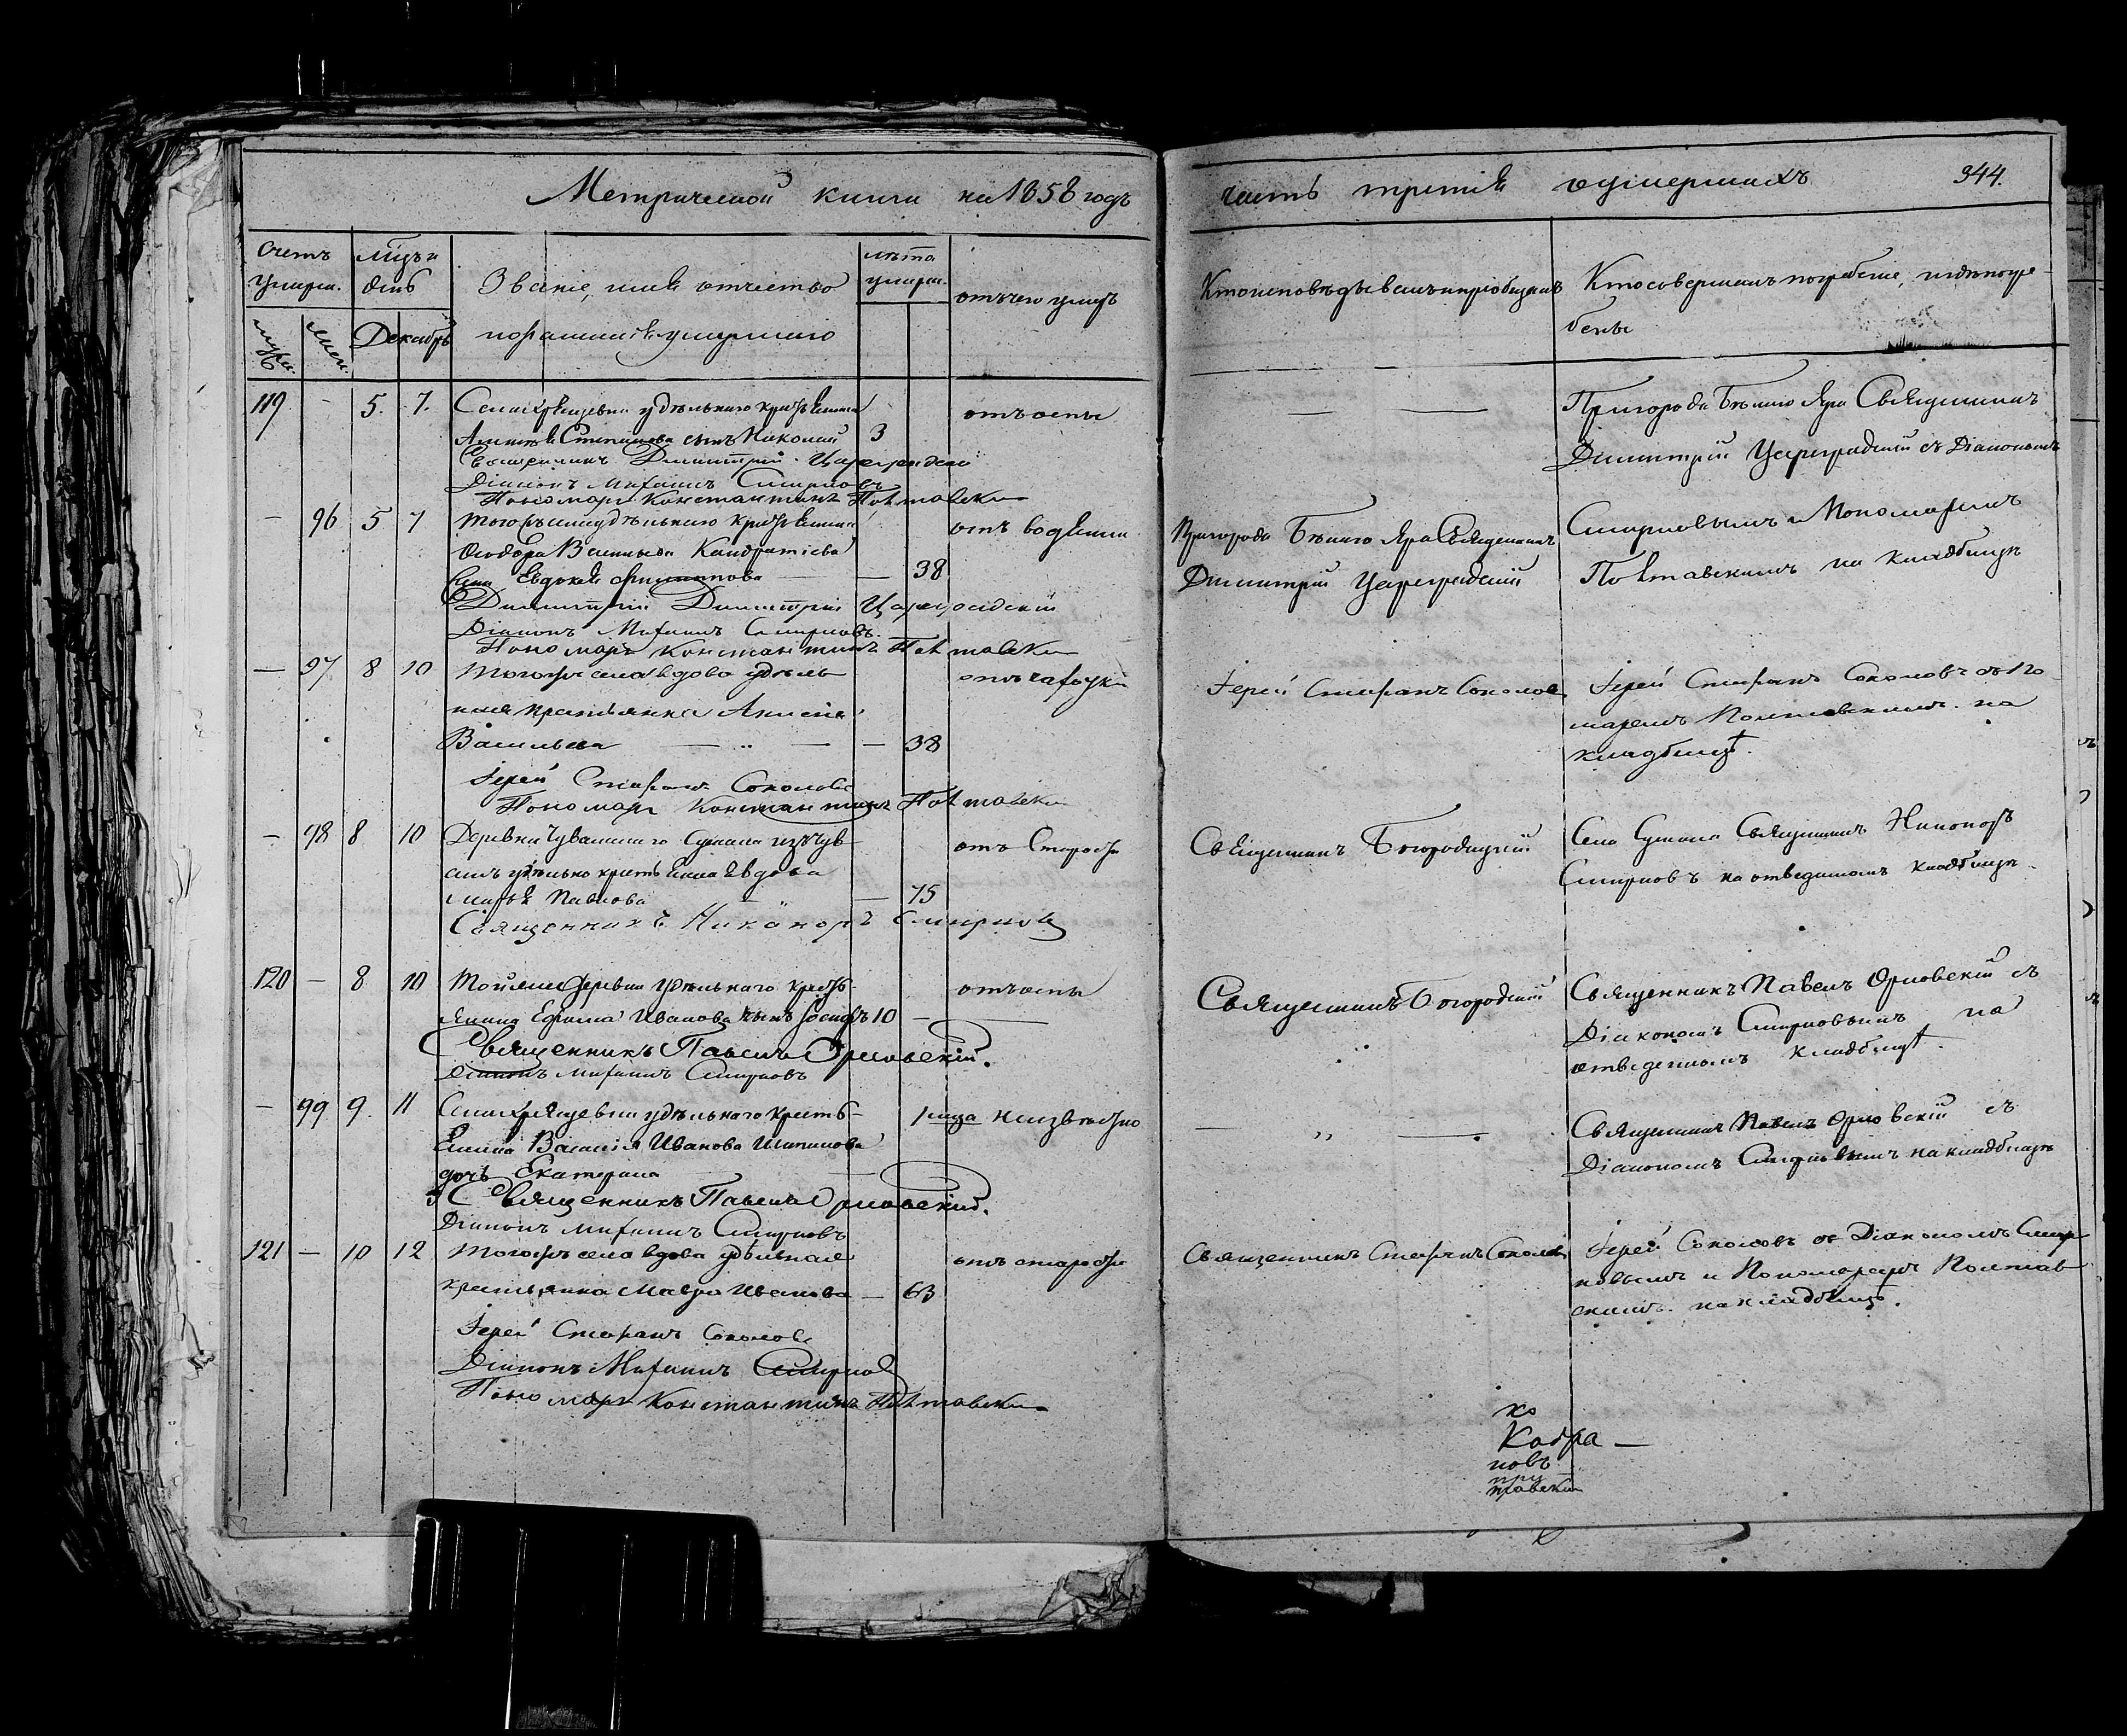 Метрической книги на 1858 годъ
счетъ умерш.
мцъ и день
Званіе, имя отчество
и фамилія умершаго
лѣта умерш.
отъ чего умеръ
муж. жен.
Декабрь
119 - 5. 7. Села Хрящевки удѣльнаго крестьянина
Степанова сынъ Николай 3
отъ оспы
Священникъ Димитрій Цареградскій
Діаконъ Михаилъ Смирновъ
Пономарь Константинъ Полтавскій
- 96 5 7 Того же села удѣльнаго крестьянина
отъ водянки
Ѳеодора Васильева Кандратіева
жена Евдокія Филиппова - - 38
Димитрій Димитрій Цареградскій
Діаконъ Михаилъ Смирновъ.
Пономарь Константинъ Полтавскій
- 97 8 10 Того же села вдова удѣль-
отъ чахотки
ная крестьянка Анисія
Васильева - „ - - 38
Іерей Стефанъ Соколовъ
Пономарь Константинъ Полтавскій
- 98 8 10 Деревни Чувашскаго Сускана изъ чув-
отъ старости
ашъ удѣльно крестьянка вдова
Марья Павлова - - 75
Священникъ Никаноръ Смирновъ
120 - 8 10 Той же деревни удѣльнаго кресть-
отъ оспы
янина Ефима Иванова сынъ Іосифъ 10 -
Священникъ Павелъ Орловскій.
Діаконъ Михаилъ Смирновъ
- 99 9. 11 Села Хрящевки удѣльнаго кресть-
1 мца неизвѣстно
янина Василія Иванова Шишкова
дочь Екатерина
Священникъ Павелъ Орловскій.
Діаконъ Михаилъ Смирновъ
121 - 10 12 Того же села вдова удѣльная
отъ старости
крестьянка Мавра Иванова - 63
Іерей Стефанъ Соколовъ
Діаконъ Михаилъ Смирновъ
Пономарь Константинъ Полтавскій
часть третія о умершихъ 344.
Кто исповѣдывалъ и пріобщалъ
Кто совершалъ погребеніе, и гдѣ погре-
бены
Пригорода Бѣлаго Яра Священникъ
Димитрій Цареградскій съ Діакономъ
Пригорода Бѣлаго Яра Священникъ
Димитрій Цареградскій
Смирновымъ и Пономаремъ
Полтавскимъ на кладбищѣ
Іерей Стефанъ Соколовъ
Іерей Стефанъ Соколовъ съ По-
маремъ Полтавскимъ на
кладбищѣ.
Священникъ Богородицкій
Села Сускана Священникъ Никаноръ
Смирновъ на отведенномъ кладбищѣ
Священникъ Богородицкій
Священникъ Павелъ Орловскій съ
Діакономъ Смирновымъ на
отведенномъ кладбищѣ.
- „ -
Священникъ Павелъ Орловскій съ
Діакономъ Смирновымъ на кладбищѣ
Священникъ Стефанъ Соколовъ
Іерей Соколовъ съ Діакономъ Смир-
новымъ и Пономаремъ Полтав-
скимъ на кладбищѣ.